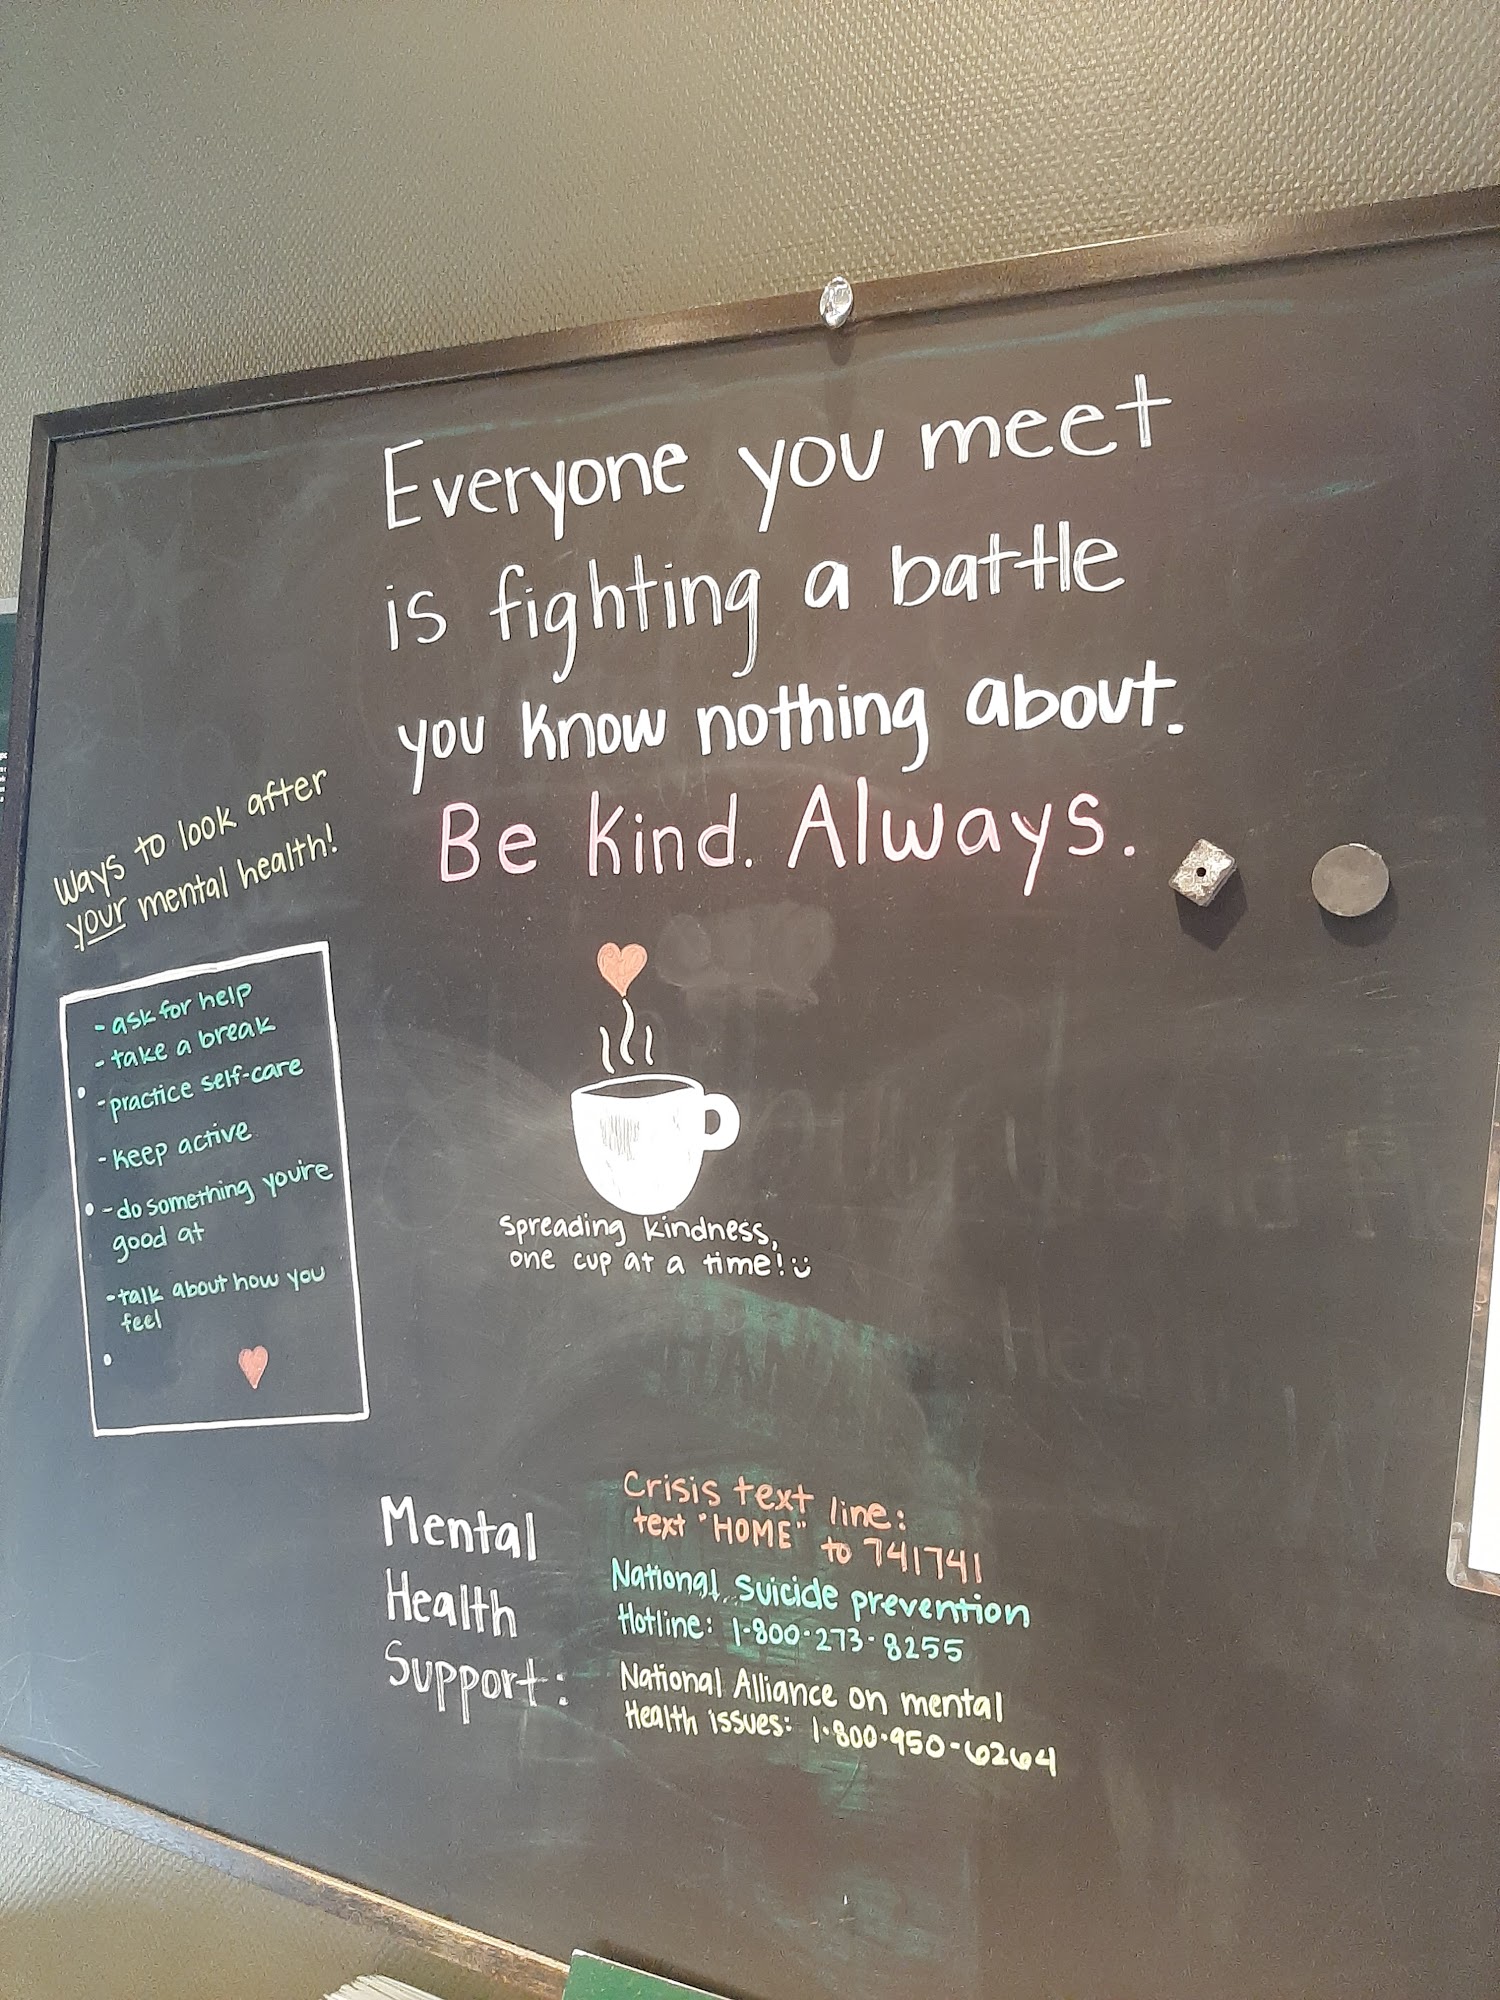 Everyone you meet
is fighting a battle
you know nothing about.
Be kind. Always.
Ways to look after
your mental health!
- ask for help
- take a break
- practice self-care
- keep active
- do something you're
good at
- talk about how you
feel
Spreading kindness,
one cup at a time! :)
Mental
Health
Support:
Crisis text line:
text "HOME" to 741741
National Suicide prevention
Hotline: 1-800-273-8255
National Alliance on mental
Health issues: 1-800-950-6264